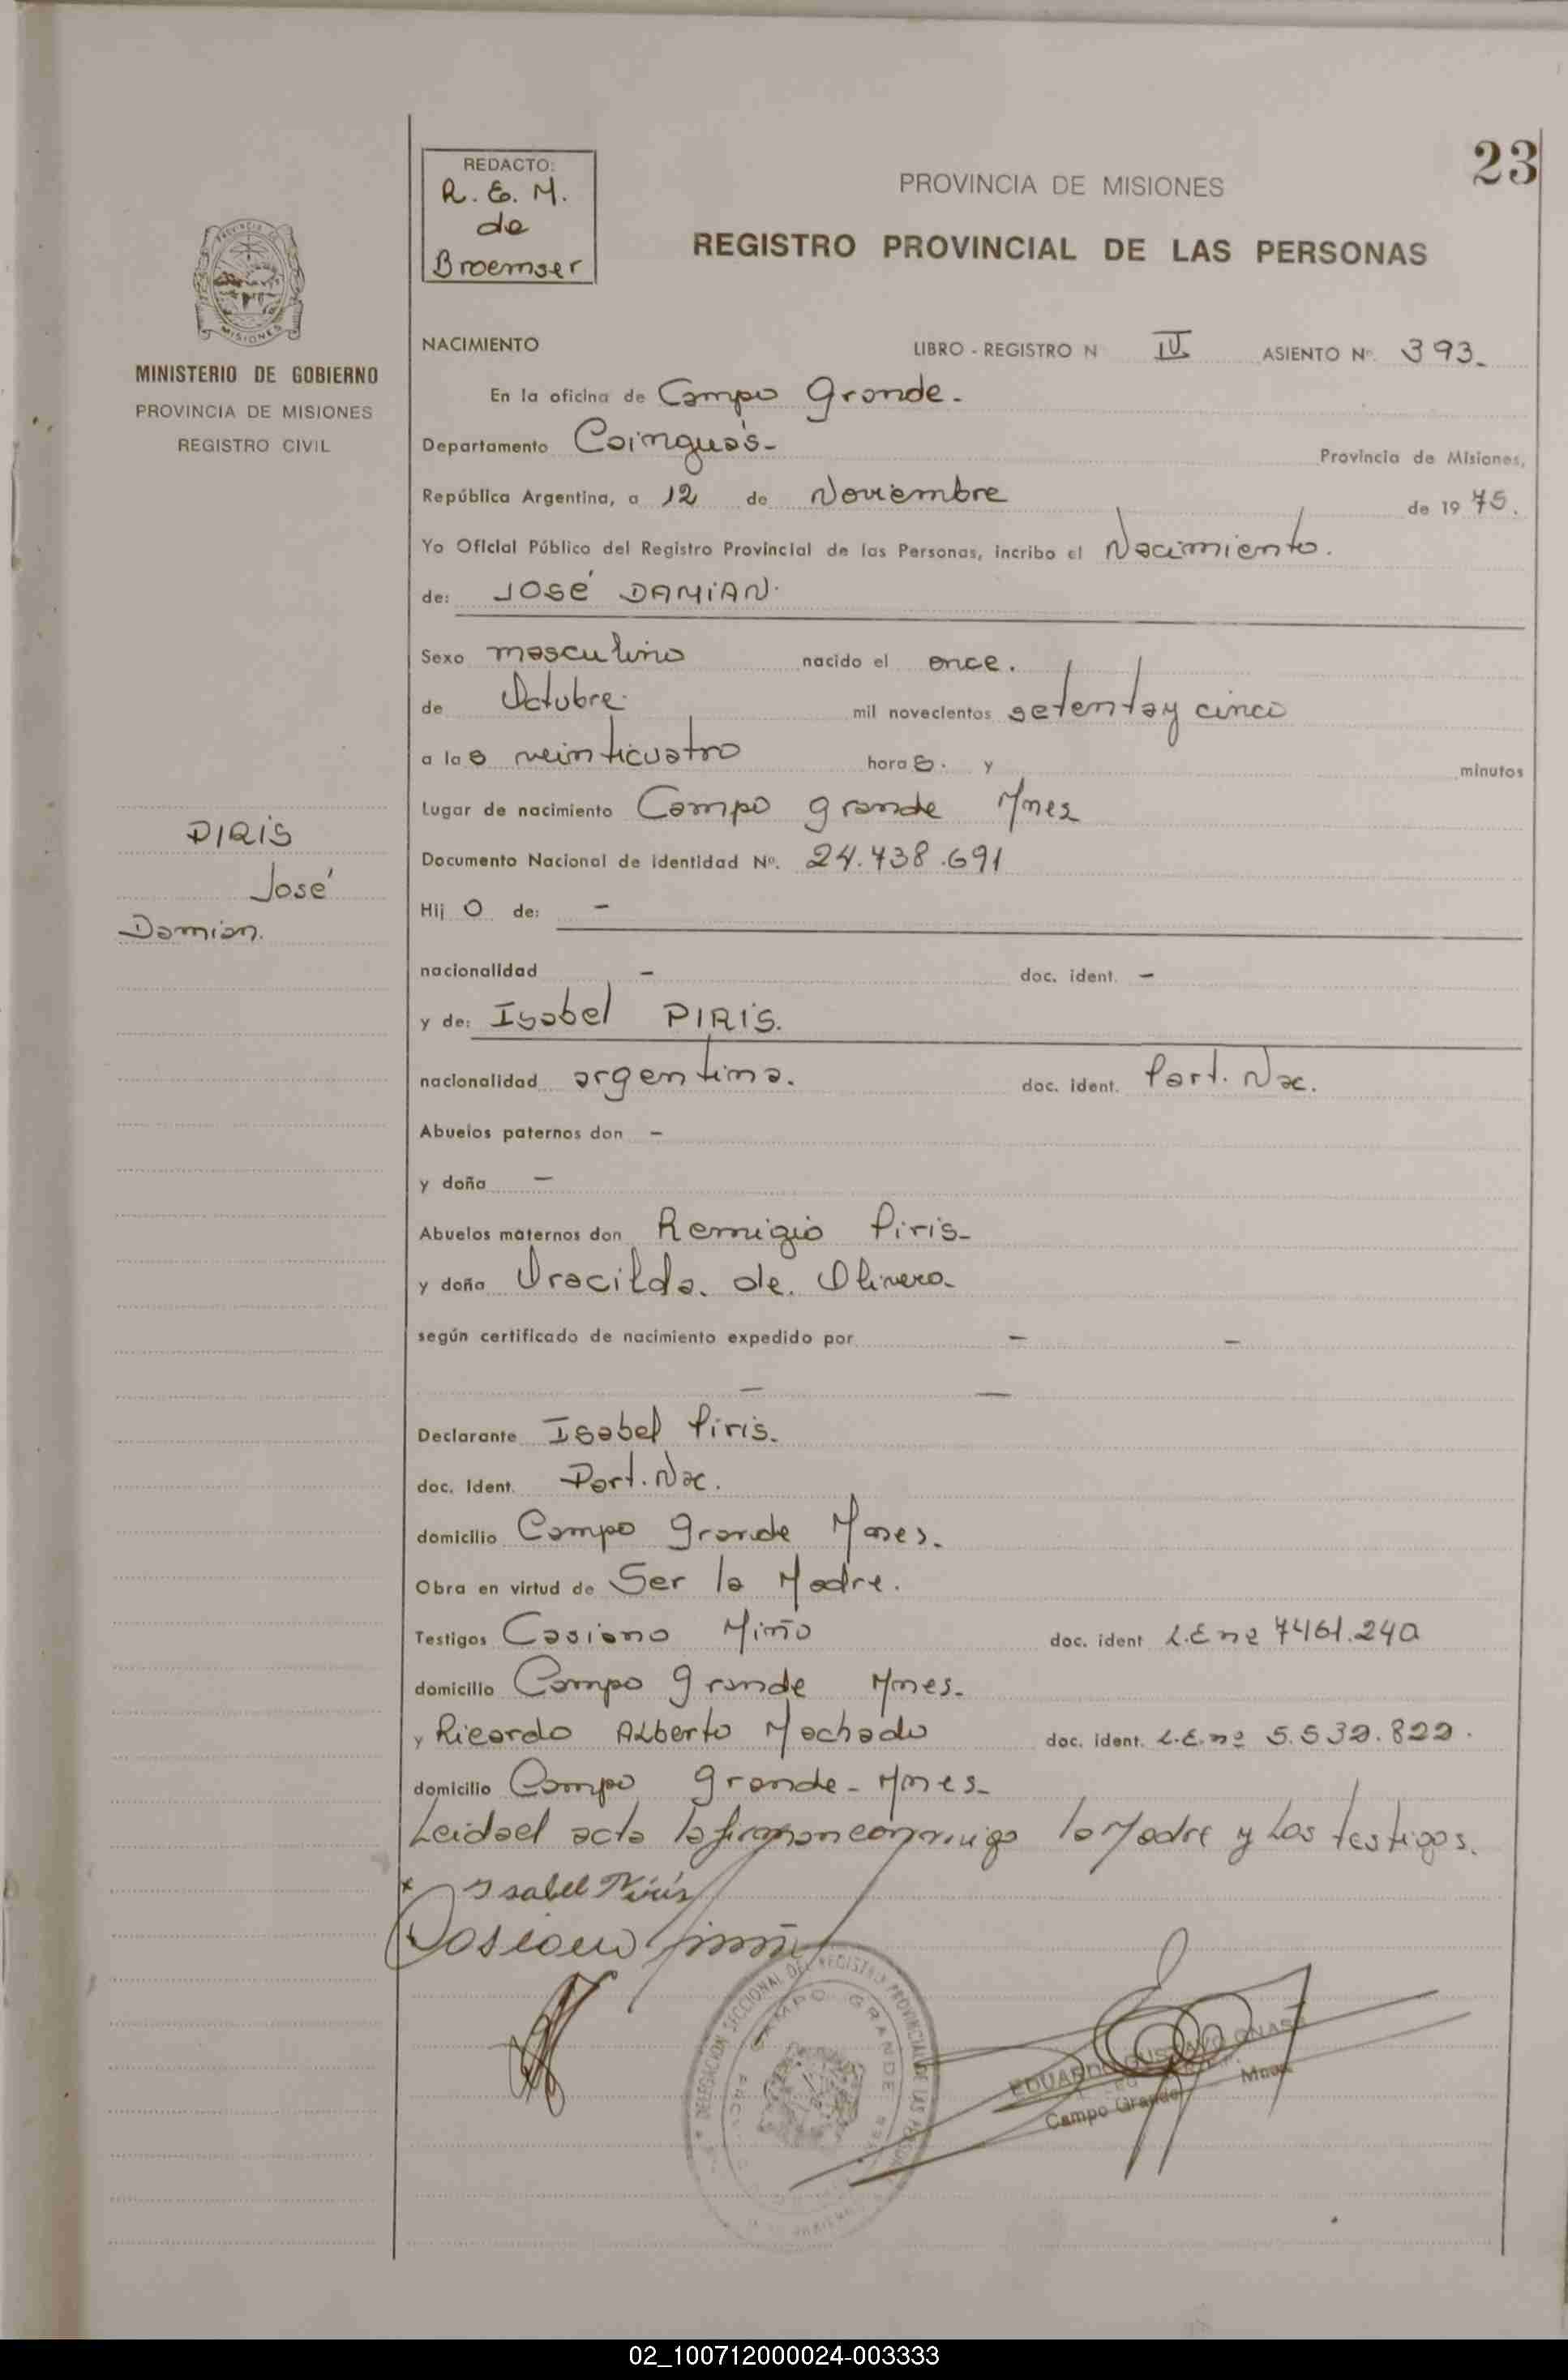 23
REDACTO:
R. E. M.
de
Broemser
PROVINCIA DE MISIONES
REGISTRO PROVINCIAL DE LAS PERSONAS
MISIONES
MINISTERIO DE GOBIERNO
PROVINCIA DE MISIONES
REGISTRO CIVIL
PIRIS
José
Damian.
NACIMIENTO LIBRO - REGISTRO N IV ASIENTO Nº. 393.
En la oficina de Campo Grande.
Departamento Cainguás Provincia de Misiones,
República Argentina, a 12 de Noviembre de 19 75.
Yo Oficial Público del Registro Provincial de las Personas, incribo el Nacimiento.
de: JOSÉ DAMIAN.
Sexo masculino nacido el once.
de Octubre. mil novecientos setenta y cinco
a las veinticuatro horas. y minutos
Lugar de nacimiento Campo grande Mnes
Documento Nacional de identidad Nº. 24.438.691
Hij o de: -
nacionalidad - doc. ident. -
y de: Isabel PIRIS.
nacionalidad argentina. doc. ident. Part. Nac.
Abuelos paternos don -
y doña -
Abuelos maternos don Remigio Piris
y doña Oracilda. de. Olivera
según certificado de nacimiento expedido por - -
- -
Declarante Isabel Piris.
doc. Ident. Part. Nac.
domicilio Campo Grande Mnes.
Obra en virtud de Ser la Madre.
Testigos Casiano Miño doc. ident L.E nº 7461.240
domicilio Campo grande Mnes.
y Ricardo ALberto Machado doc. ident. L.E. nº 5.532.822.
domicilio Campo grande - Mnes
Leida el acta la firman conmigo la Madre y los testigos.
x Isabel Piris
Casiano Miño
DELEGACION SECCIONAL DEL REGISTRO PROVINCIAL DE LAS PERSONAS
CAMPO GRANDE
EDUARDO GUSTAVO
Campo Grande Mnes.
02_100712000024-003333